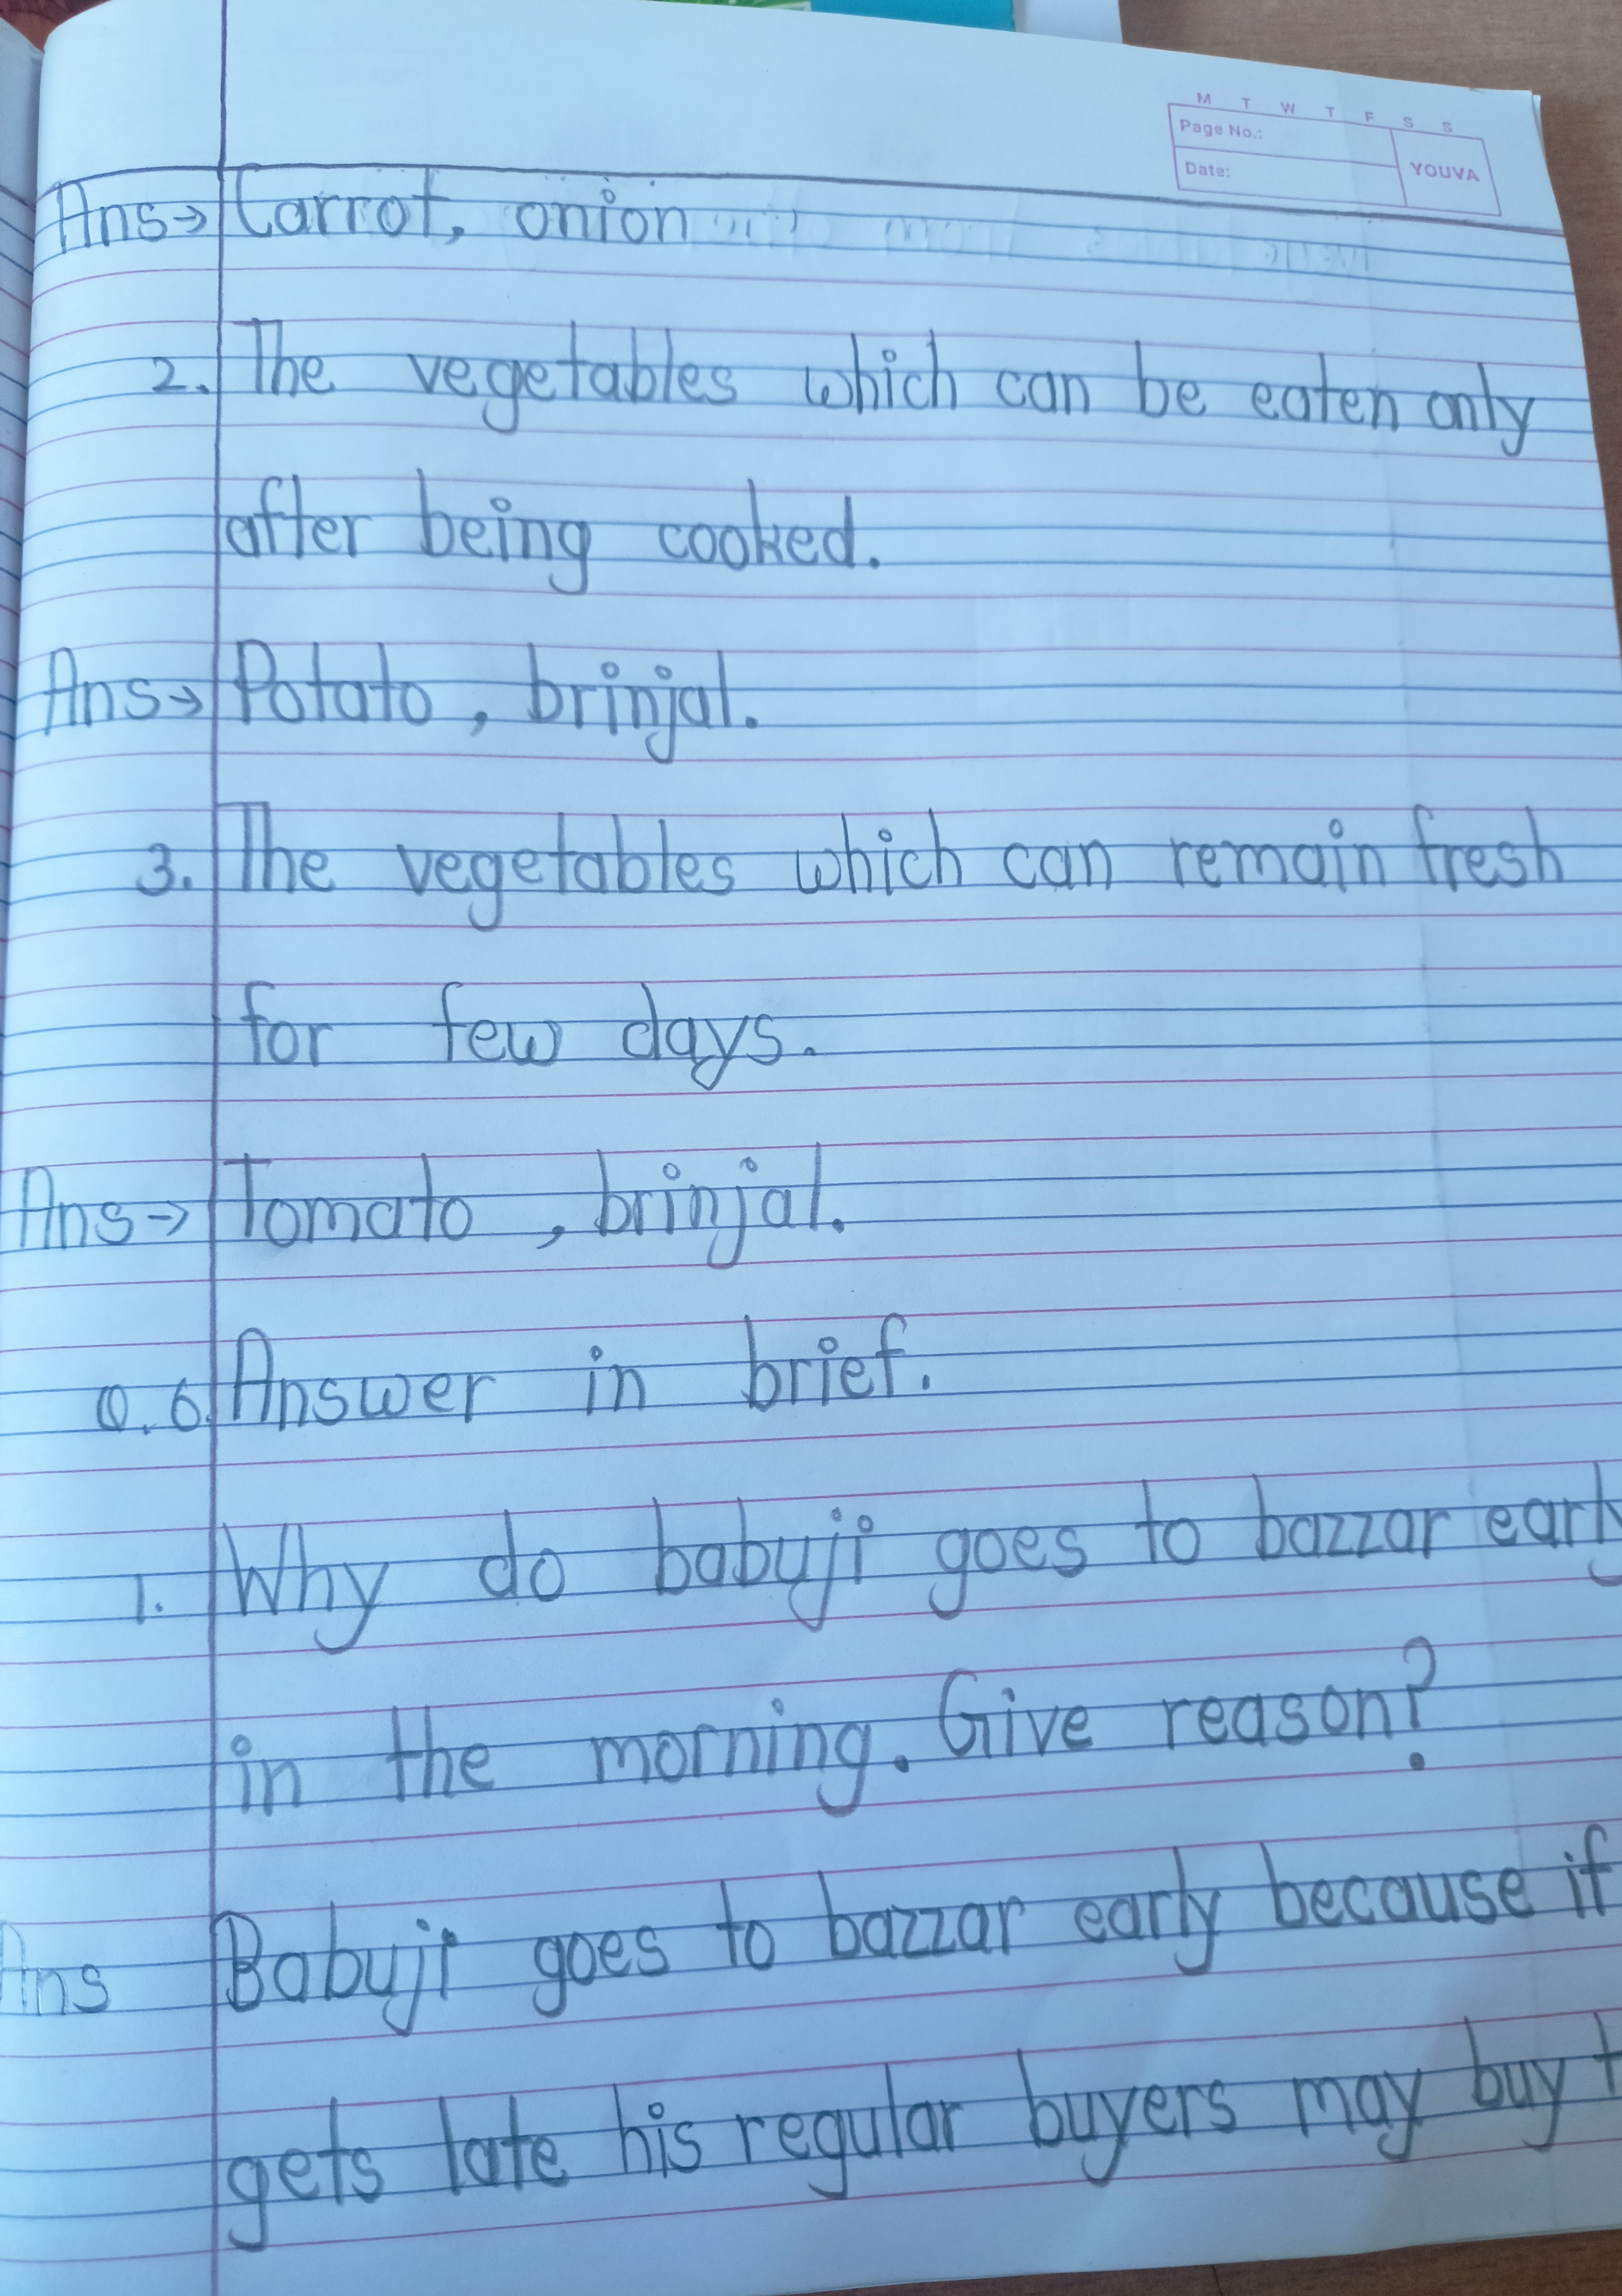 M T W T F S S
Page No.:
Date:
YOUVA
Ans→ Carrot, onion
2. The vegetables which can be eaten only
after being cooked.
Ans→ Potato, brinjal.
3. The vegetables which can remain fresh
for few days.
Ans→ Tomato, brinjal.
Q.6. Answer in brief.
1. Why do babuji goes to bazzar early
in the morning. Give reason?
Ans Babuji goes to bazzar early because if
gets late his regular buyers may buy